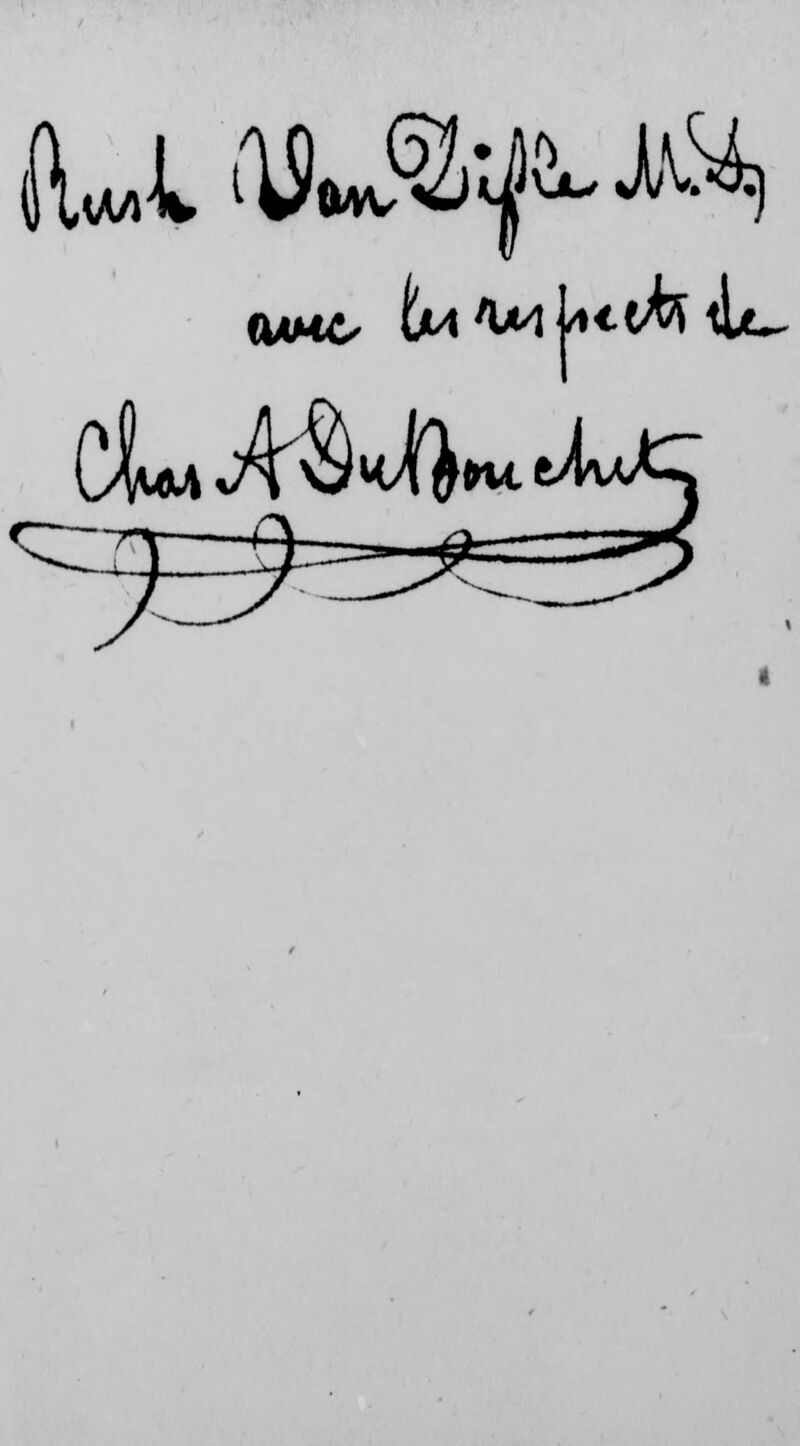 Rush Van Dyke M.D.,
avec les respects de
Chas A DuBouchet